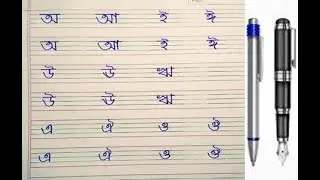 অ আ ই ঈ
অ আ ই ঈ
উ ঊ ঋ
উ ঊ ঋ
এ ঐ ও ঔ
এ ঐ ও ঔ